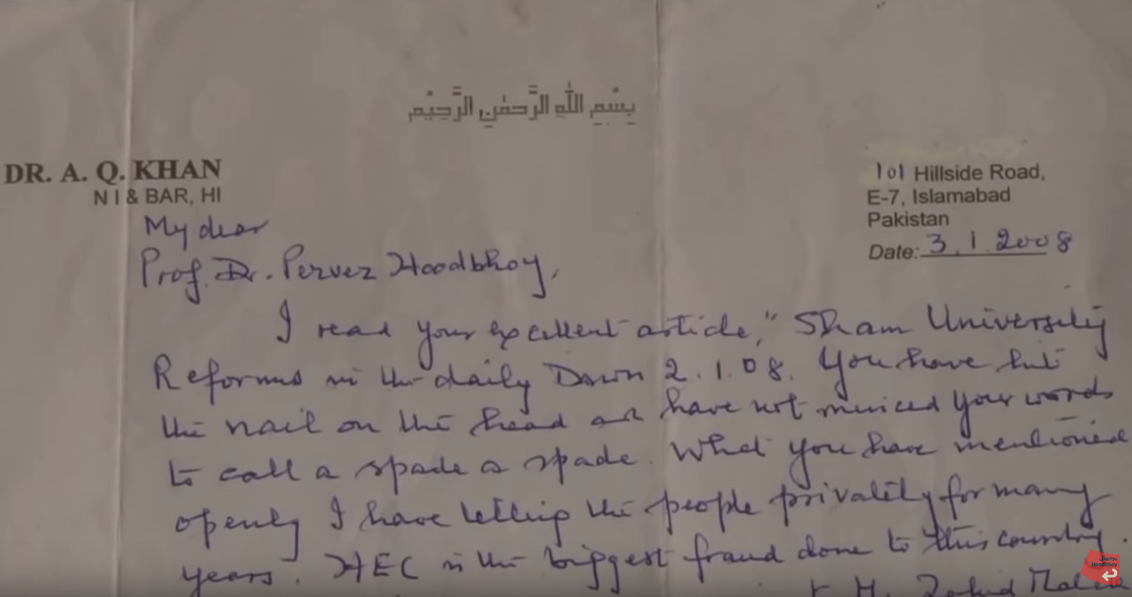 بِسْمِ اللهِ الرَّحْمٰنِ الرَّحِيْمِ
DR. A. Q. KHAN
N I & BAR, HI
101 Hillside Road,
E-7, Islamabad
Pakistan
Date: 3.1.2008
My dear
Prof. Dr. Pervez Hoodbhoy,
I read your excellent article, "Sham University
Reforms in the daily Dawn 2.1.08. You have hit
the nail on the head and have not minced your words
to call a spade a spade. What you have mentioned
openly I have telling the people privately for many
years. HEC is the biggest fraud done to this country.
M. Zahid Malik